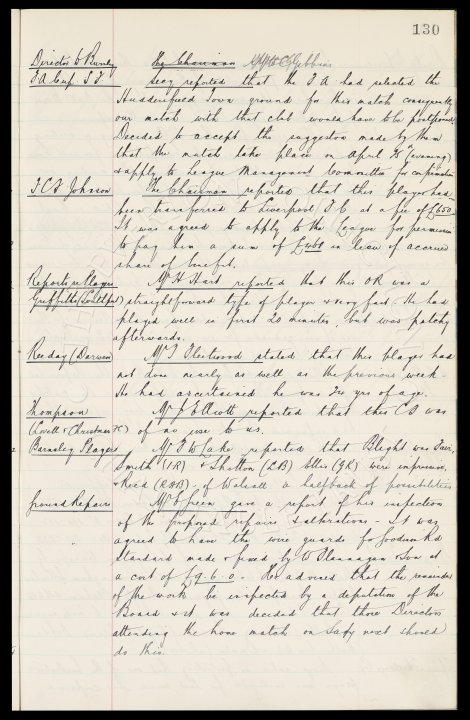 130
Director to Burnley The Chairman
F A Cup S F Secy reported that the F A had selected the
Huddersfield Town ground for this match consequently
our match with that club would have to be postponed.
Decided to accept the suggestion made by them
that the match take place on April (evening)
& apply to League Management Committee for confirmation
T C F Johnson The Chairman reported that this player had
been transferred to Liverpool F C at a fee of £650.
It was agreed to apply to the League for permission
to pay him a sum of in lieu of accrued
share of benefit.
Reports re Players Mr H Hart reported that this OR was a
Griffiths (Southport) straightforward type of player & very fast. He had
played well in first 20 minutes, but was patchy
afterwards.
(Darwen) Mr J Fleetwood stated that this player had
not done nearly as well as the previous week -
He had ascertained he was yrs of age.
Thompson Mr reported that this was
(Lovell's Christmas) of no use to us.
Barnsley Players Mr reported that Blight was fair,
Smith (IR) & Shotton (LB) Ellis (GK) were impressive,
& Reed (RHB) of Walsall a halfback of possibilities
Ground Repairs Mr E Green gave a report of his inspection
of the proposed repairs & alterations - It was
agreed to have the wire guards for Goodison Rd
Standard made & fixed by W Flannagan & Son at
a cost of £9.6.0. He advised that the remainder
of the work be inspected by a deputation of the
Board & it was decided that those Directors
attending the home match on Satdy next should
do this.